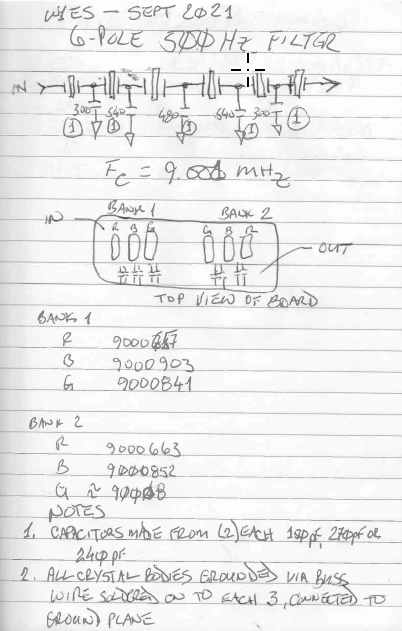 W1ES - SEPT 2021
6-POLE 500Hz FILTER
IN
300 540 480 540 300
1 1 1 1
Fc = MHz
IN BANK 1 BANK 2
R B G G B R
OUT
TOP VIEW OF BOARD
BANK 1
R
B 9000903
G 9000841
BANK 2
R 9000663
B 9000852
G ≈
NOTES
1. CAPACITORS MADE FROM (2) EACH 270pf OR
240pf
2. ALL CRYSTAL BODIES GROUNDED VIA BUSS
WIRE SOLDERED ON TO EACH 3, CONNECTED TO
GROUND PLANE